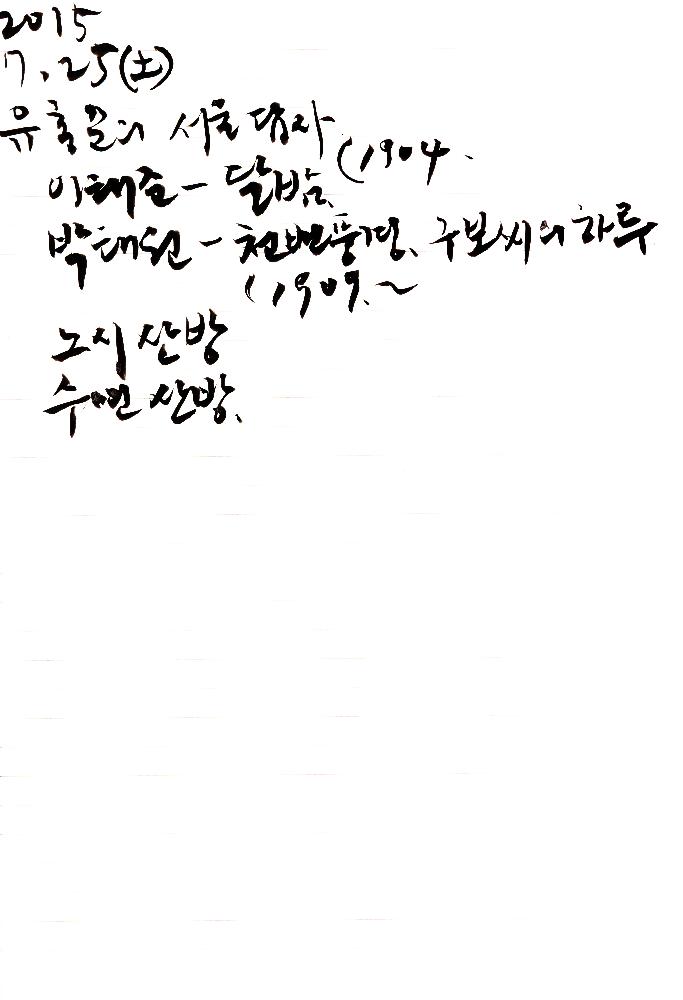 2015
7.25(土)
유홍준의 서울 답사
이태준 - 달밤. (1904.
박태원 - 천변풍경. 구보씨의 하루
(1909.~
노시산방
수연산방.